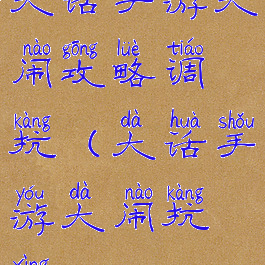 大话手游大
nào gōng luè tiáo
闹攻略调
kàng dà huà shǒu
抗（大话手
yóu dà nào kàng
游大闹抗
xìng